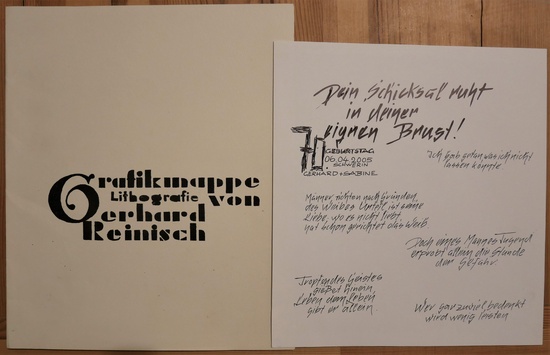 Grafikmappe
Lithografie von
Gerhard
Reinisch
Dein Schicksal ruht
in deiner
eignen Brust!
70.
GEBURTSTAG
06.04.2005
SCHWERIN
GERHARD + SABINE
Ich hab getan was ich nicht
lassen konnte
Männer richten nach Gründen
des Weibes Urteil ist seine
Liebe, wo es nicht liebt
hat schon gerichtet das Weib
Doch eines Mannes Tugend
erprobt allein die Stunde
der Gefahr
Tropfen des Geistes
gießet hinein,
Leben dem Leben
gibt er allein
Wer gar zuviel bedenkt
wird wenig leisten